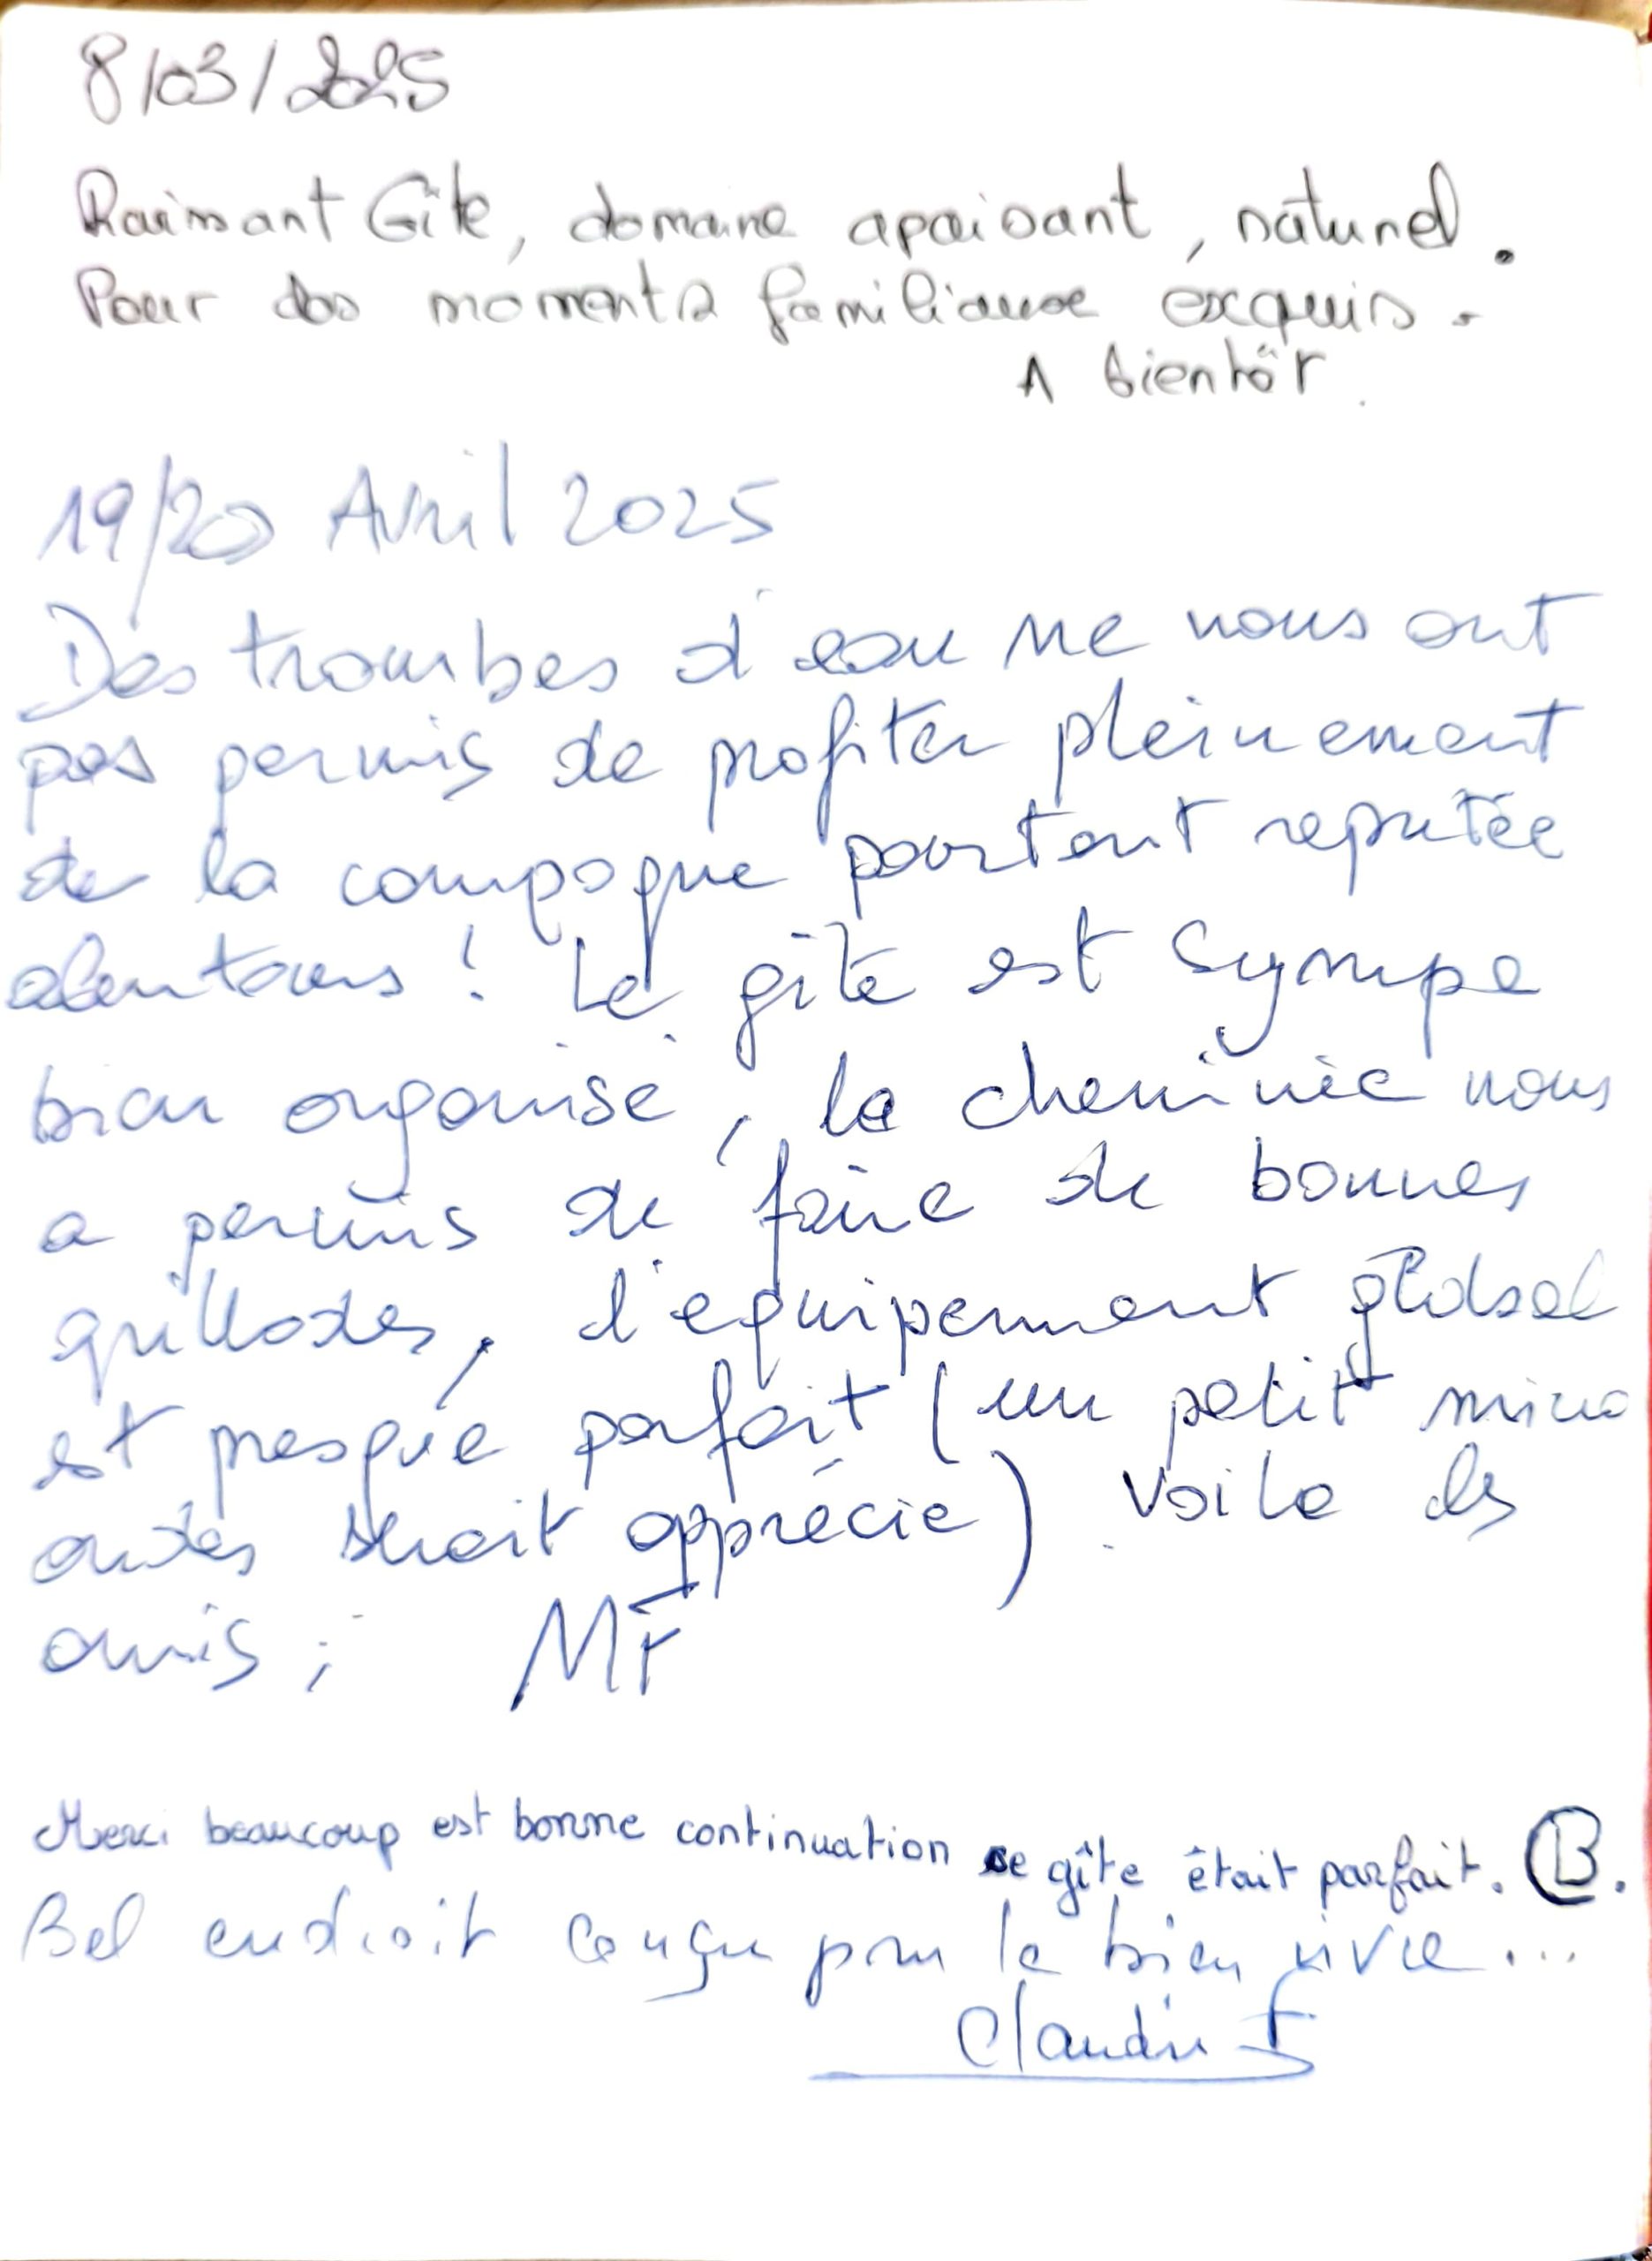 8/03/2025
Raimant Gîte, domaine apaisant, naturel.
Pour des moments familiaux exquis.
A bientôt.
19/20 Avril 2025
Des trombes d'eau ne nous ont
pas permis de profiter pleinement
de la campagne pourtant reputée
alentours ! Le gîte est sympa
bien organisé, la cheminée nous
a permis de faire de bonnes
grillades, l'equipement global
est presque parfait (un petit micro
ondes serait apprécié). Voila les
amis ;
Merci beaucoup est bonne continuation ce gîte était parfait. B.
Bel endroit conçu pour le bien vivre...